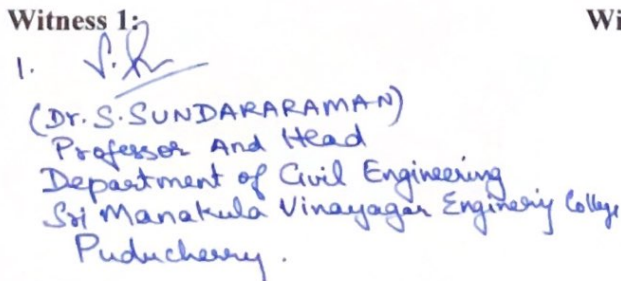 Witness 1:
Wi
1.
(Dr. S. SUNDARARAMAN)
Professor And Head
Department of Civil Engineering
Sri Manakula Vinayagar Enginering College
Puducherry.